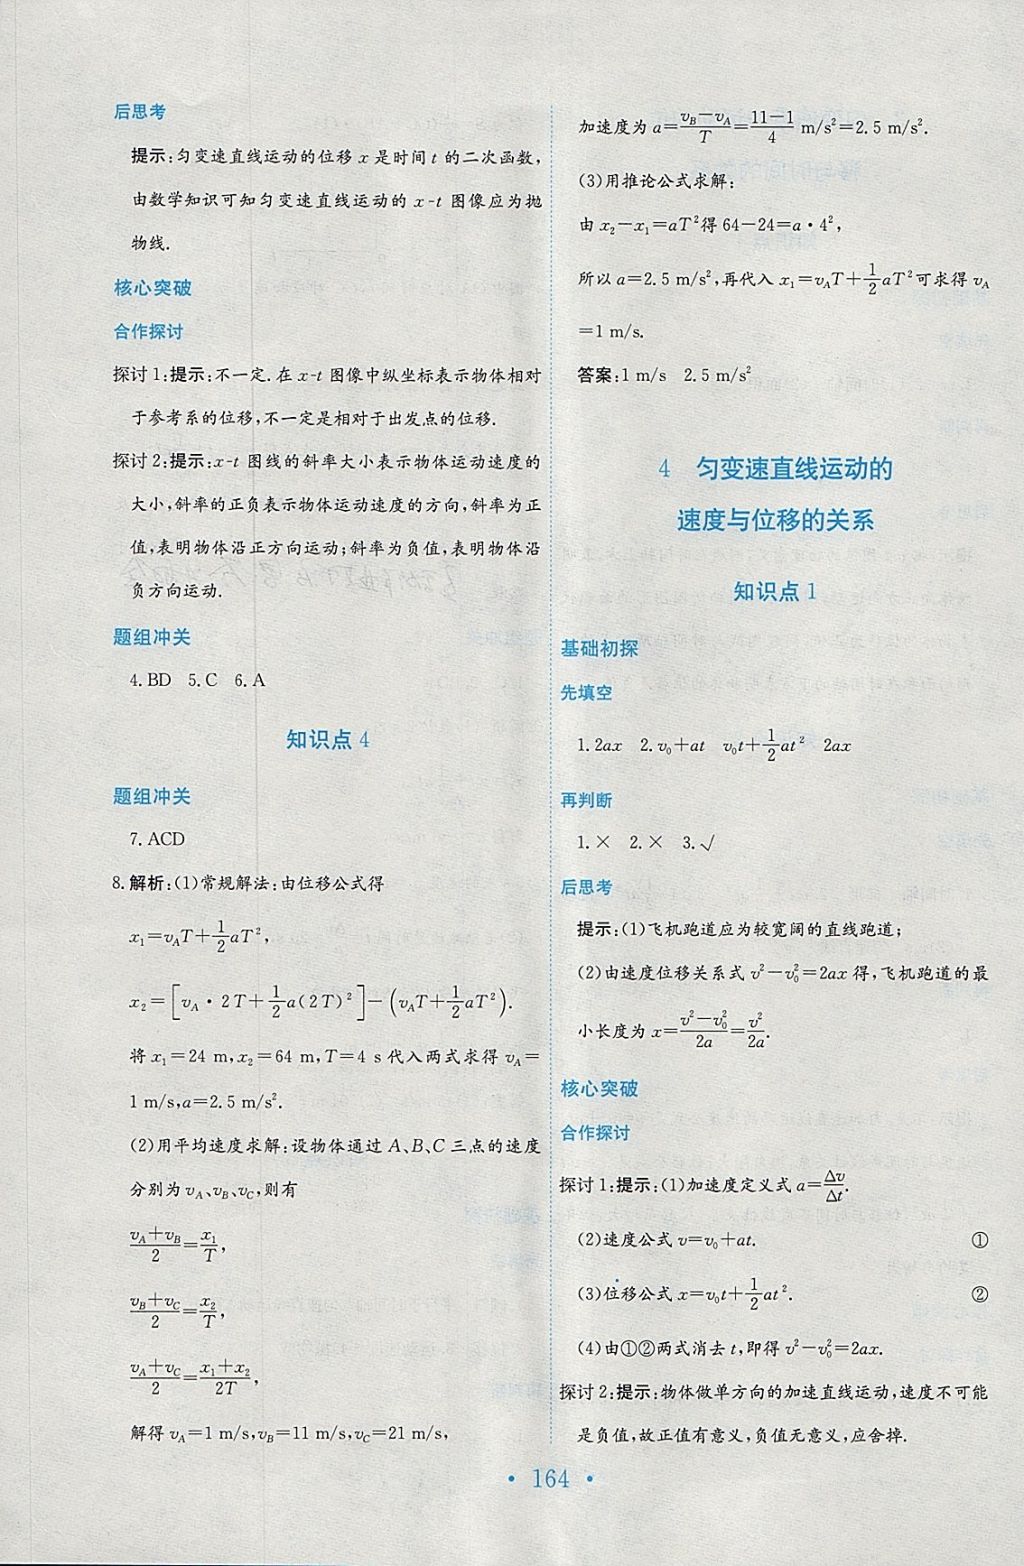 后思考
提示:匀变速直线运动的位移 x 是时间 t 的二次函数,
由数学知识可知匀变速直线运动的 x-t 图像应为抛
物线.
核心突破
合作探讨
探讨 1:提示:不一定.在 x-t 图像中纵坐标表示物体相对
于参考系的位移,不一定是相对于出发点的位移.
探讨 2:提示:x-t 图线的斜率大小表示物体运动速度的
大小,斜率的正负表示物体运动速度的方向,斜率为正
值,表明物体沿正方向运动;斜率为负值,表明物体沿
负方向运动.
题组冲关
4.BD 5.C 6.A
知识点 4
题组冲关
7.ACD
8.解析:(1)常规解法:由位移公式得
x₁=v_A T+\frac{1}{2}aT²,
x₂=[v_A·2T+\frac{1}{2}a(2T)²]-(v_A T+\frac{1}{2}aT²).
将 x₁=24 m,x₂=64 m,T=4 s 代入两式求得 v_A=
1 m/s,a=2.5 m/s².
(2)用平均速度求解:设物体通过 A、B、C 三点的速度
分别为 v_A、v_B、v_C,则有
\frac{v_A+v_B}{2}=\frac{x₁}{T},
\frac{v_B+v_C}{2}=\frac{x₂}{T},
\frac{v_A+v_C}{2}=\frac{x₁+x₂}{2T},
解得 v_A=1 m/s,v_B=11 m/s,v_C=21 m/s,
加速度为 a=\frac{v_B-v_A}{T}=\frac{11-1}{4} m/s²=2.5 m/s².
(3)用推论公式求解:
由 x₂-x₁=aT²得 64-24=a·4²,
所以 a=2.5 m/s²,再代入 x₁=v_A T+\frac{1}{2}aT²可求得 v_A
=1 m/s.
答案:1 m/s 2.5 m/s²
4 匀变速直线运动的
速度与位移的关系
知识点 1
基础初探
先填空
1.2ax 2.v₀+at v₀t+\frac{1}{2}at² 2ax
再判断
1.× 2.× 3.√
后思考
提示:(1)飞机跑道应为较宽阔的直线跑道;
(2)由速度位移关系式 v²-v₀²=2ax 得,飞机跑道的最
小长度为 x=\frac{v²-v₀²}{2a}=\frac{v²}{2a}.
核心突破
合作探讨
探讨 1:提示:(1)加速度定义式 a=\frac{Δv}{Δt}.
(2)速度公式 v=v₀+at. ①
(3)位移公式 x=v₀t+\frac{1}{2}at². ②
(4)由①②两式消去 t,即得 v²-v₀²=2ax.
探讨 2:提示:物体做单方向的加速直线运动,速度不可能
是负值,故正值有意义,负值无意义,应舍掉.
· 164 ·